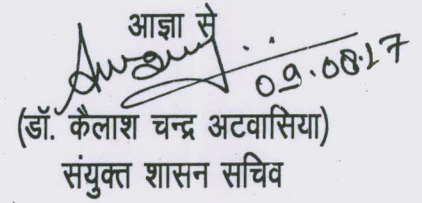 आज्ञा से
09.08.17
(डॉ. कैलाश चन्द्र अटवासिया)
संयुक्त शासन सचिव